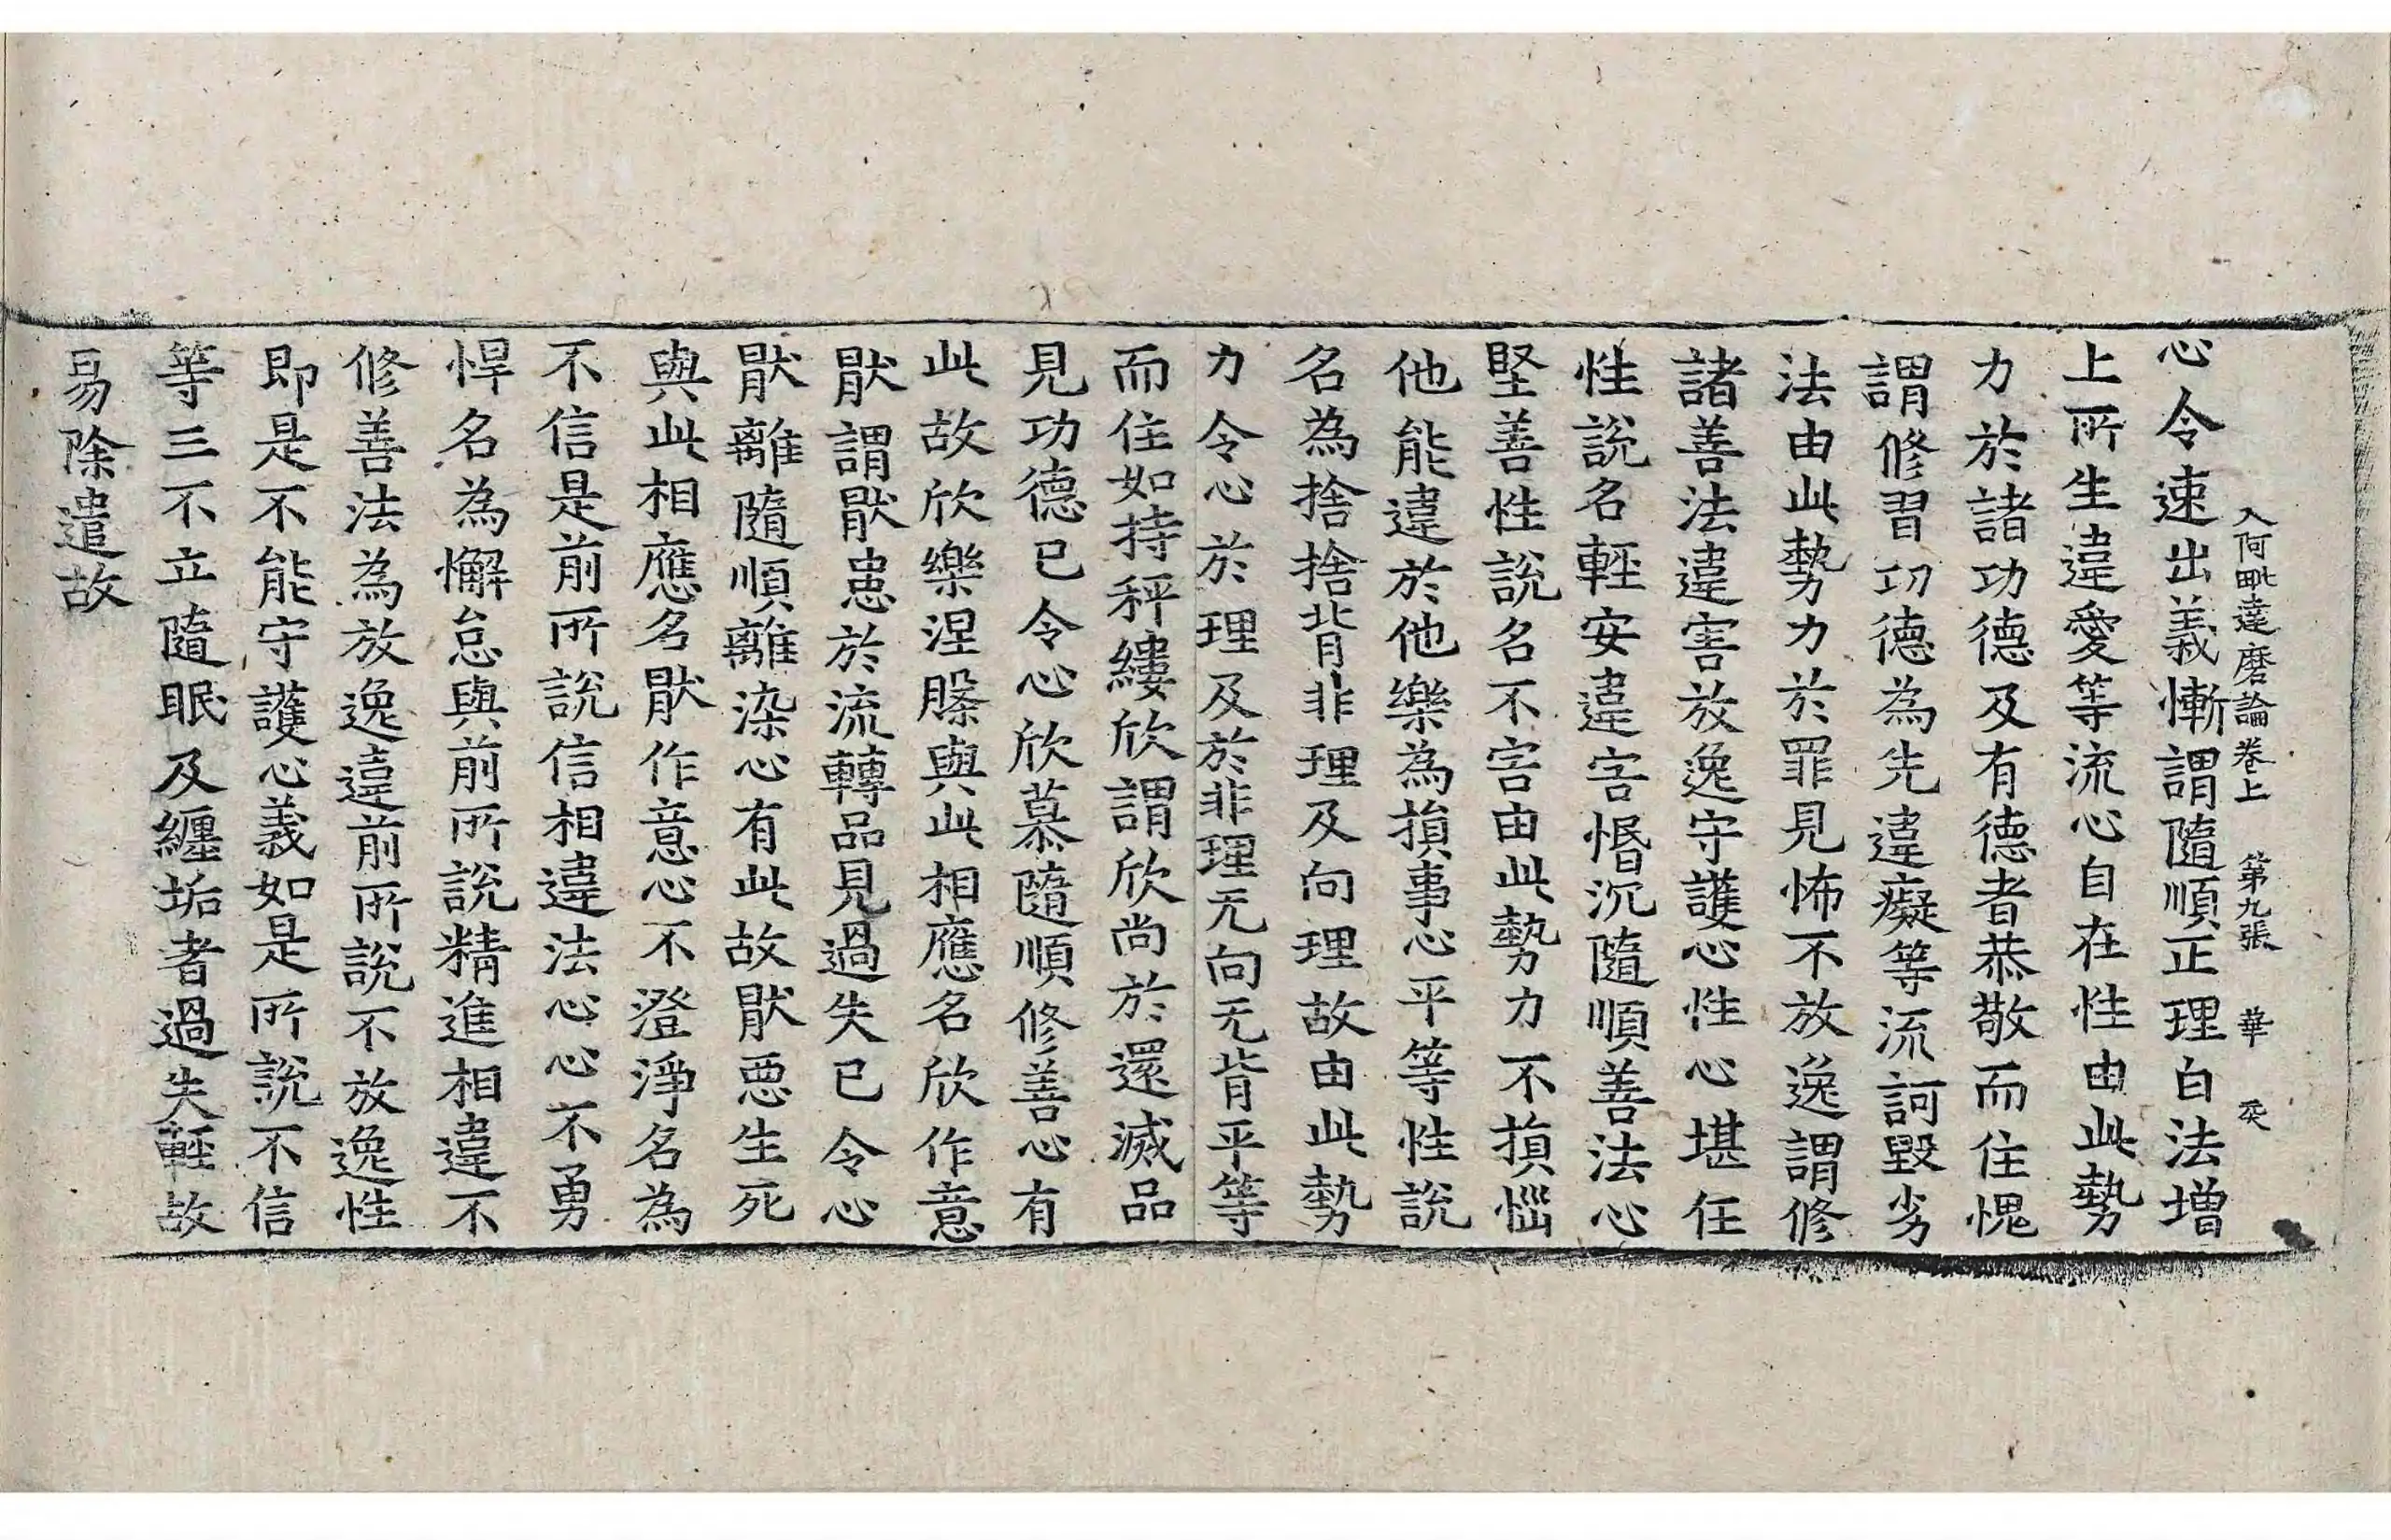 入阿毗達磨論卷上 第九張 華
心令速出義慚謂隨順正理白法增
上所生違愛等流心自在性由此勢
力於諸功德及有德者恭敬而住愧
謂修習功德為先違癡等流訶毀劣
法由此勢力於罪見怖不放逸謂修
諸善法違害放逸守護心性心堪任
性說名輕安違害惛沉隨順善法心
堅善性說名不害由此勢力不損惱
他能違於他樂為損事心平等性說
名為捨捨背非理及向理故由此勢
力令心於理及於非理无向无背平等
而住如持秤縷欣謂欣尚於還滅品
見功德已令心欣慕隨順修善心有
此故欣樂涅槃與此相應名欣作意
猒謂猒患於流轉品見過失已令心
猒離隨順離染心有此故猒惡生死
與此相應名猒作意心不澄淨名為
不信是前所說信相違法心心不勇
悍名為懈怠與前所說精進相違不
修善法為放逸違前所說不放逸性
即是不能守護心義如是所說不信
等三不立隨眠及纏垢者過失輕故
易除遣故